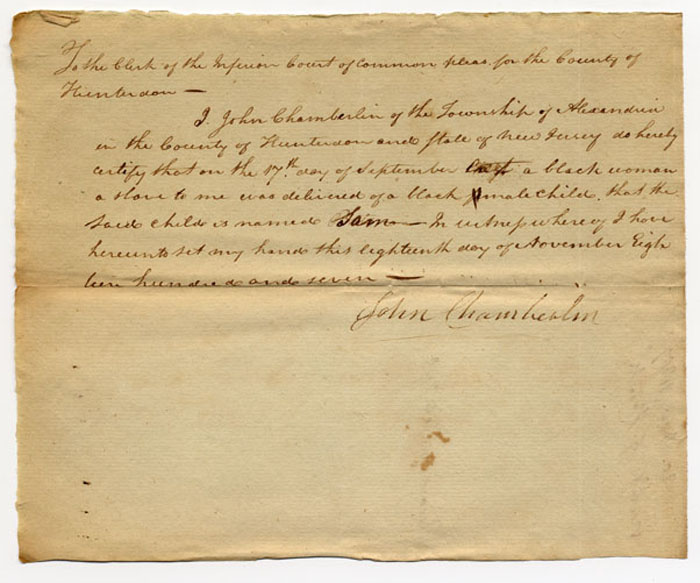 To the Clerk of the Inferior Court of Common pleas for the County of
Hunterdon —
I John Chamberlin of the Township of Alexandria
in the County of Hunterdon and State of New Jersey do hereby
certify that on the 17th day of September a black woman
a slave to me was delivered of a black male child. that the
said child is named Sam — In witness whereof I have
hereunto set my hand this eighteenth day of November Eigh
teen hundred and seven —
John Chamberlin